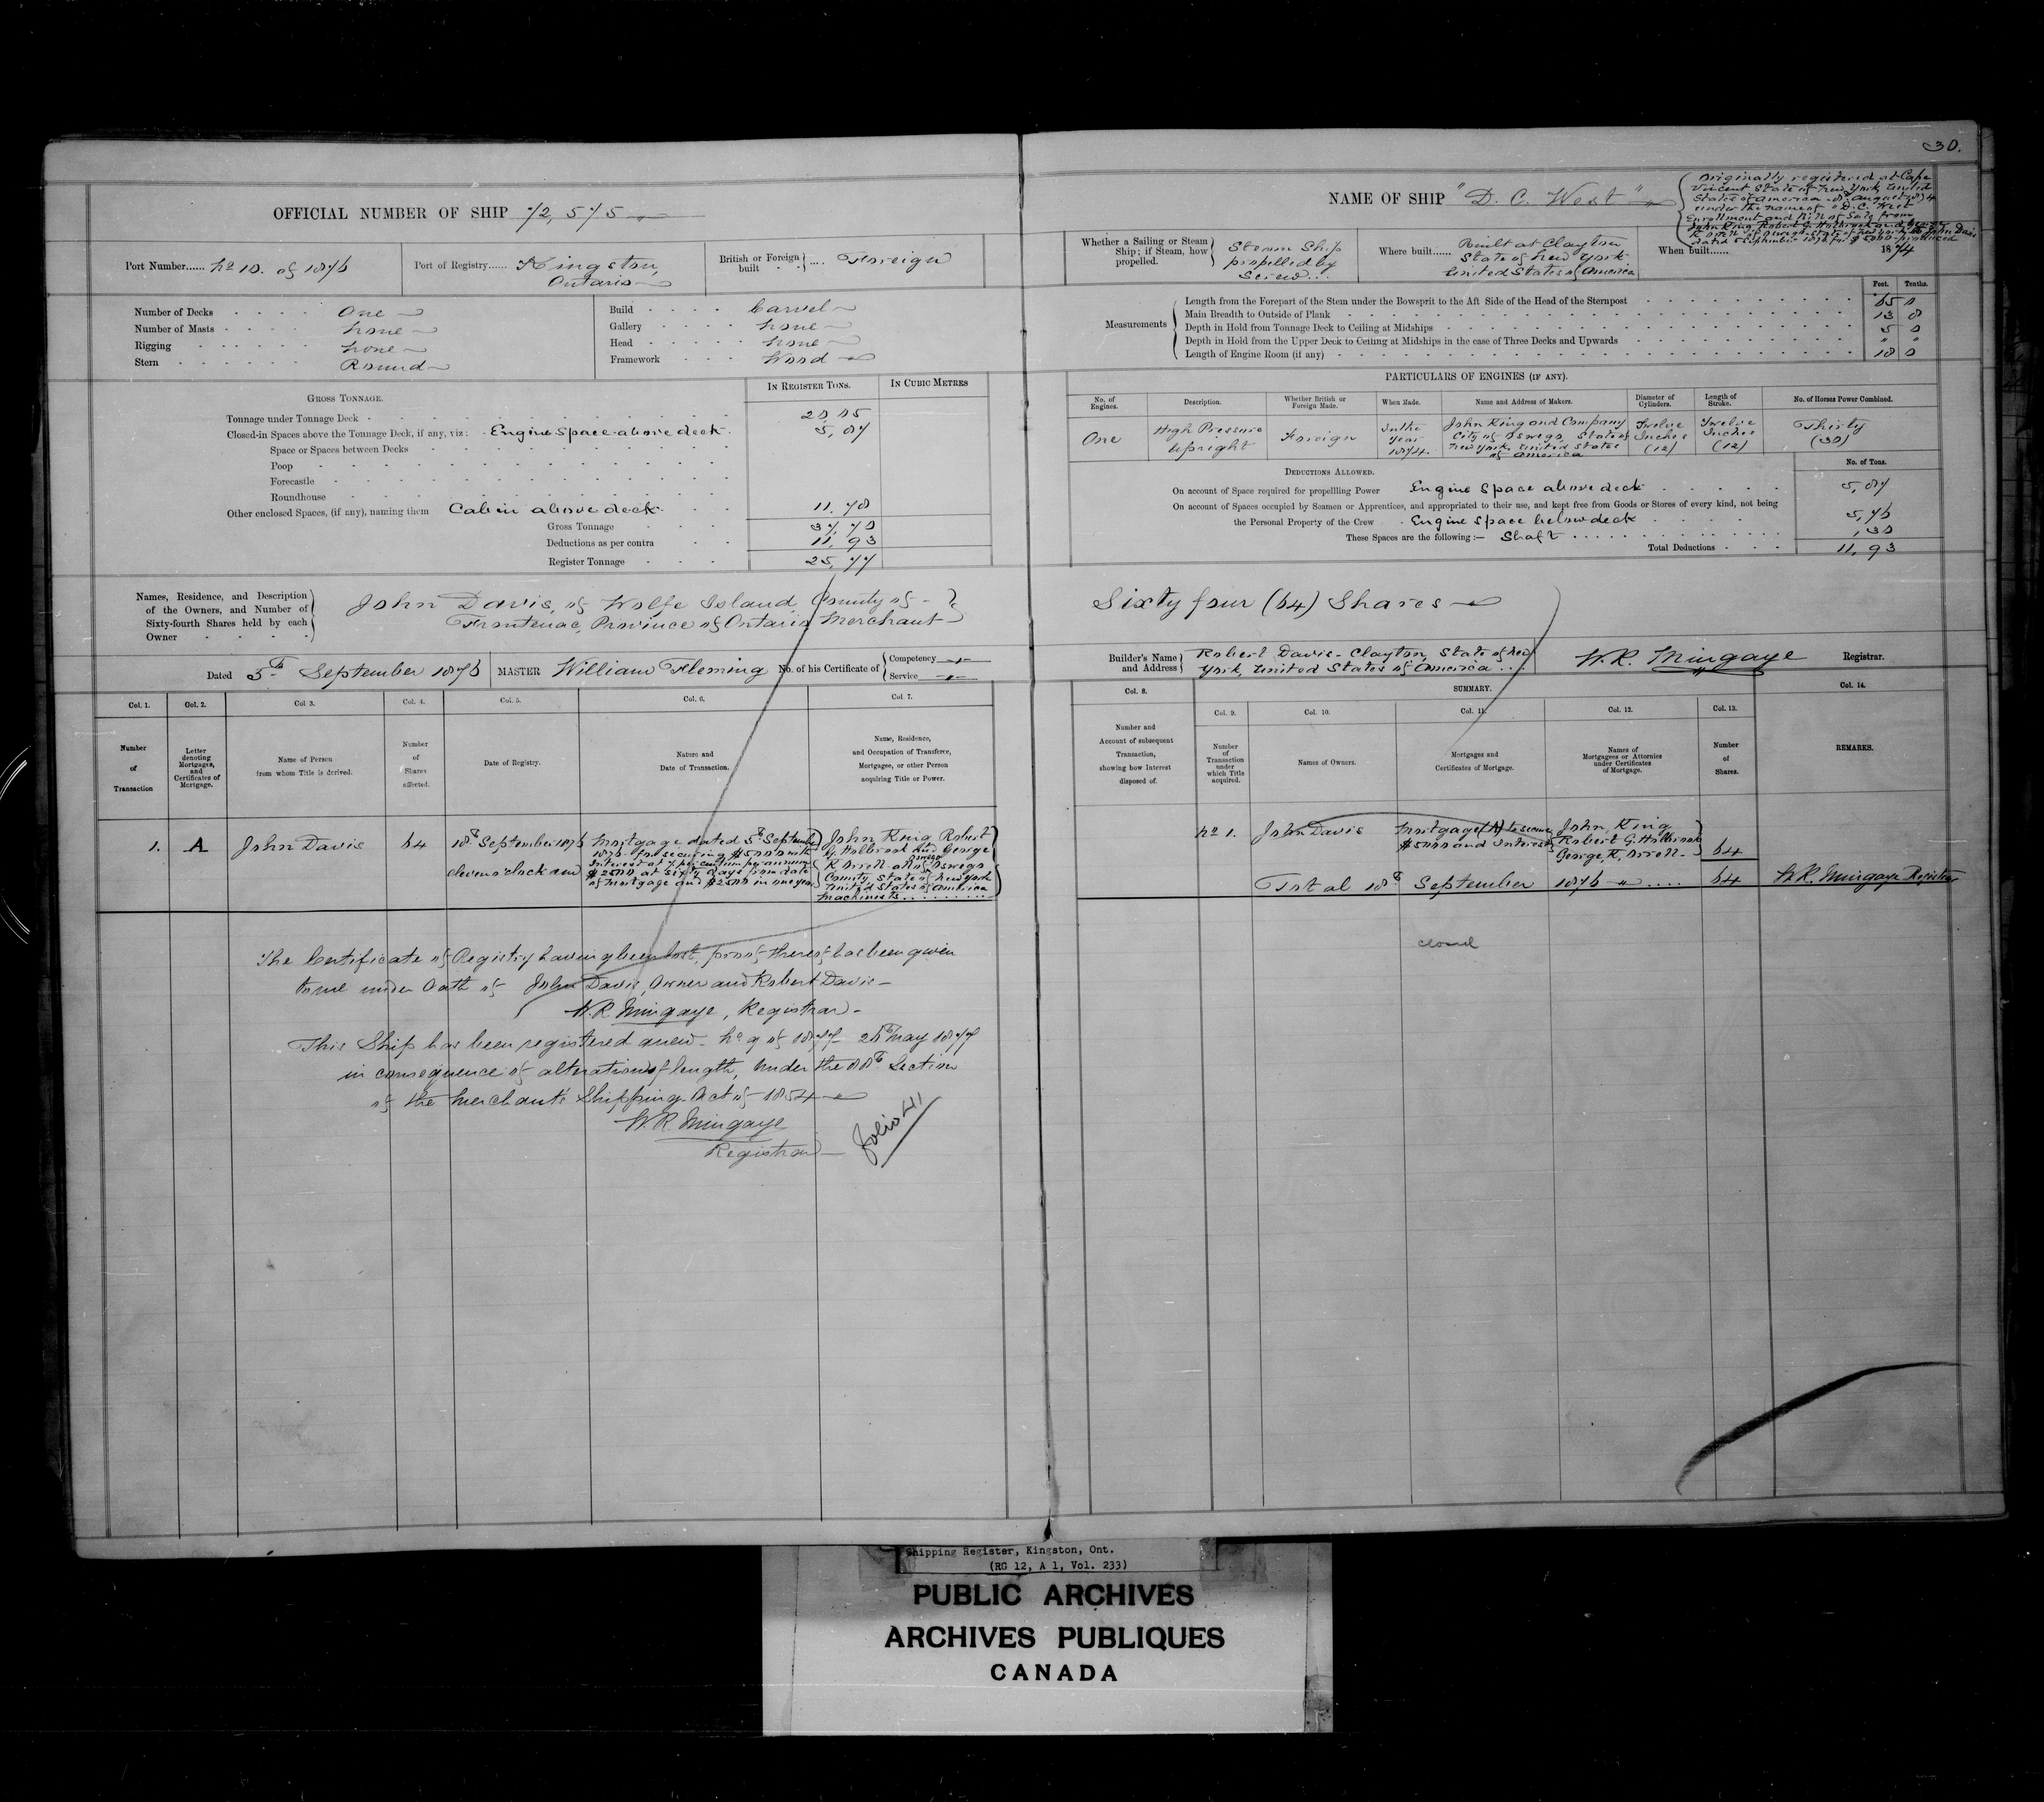 30.
OFFICIAL NUMBER OF SHIP 72,575
Port Number...... No 10. of 1876
Port of Registry...... Kingston,
Ontario
British or Foreign
built .... Foreign
Number of Decks One
Number of Masts None
Rigging None
Stern Round
Build Carvel
Gallery None
Head None
Framework Wood
GROSS TONNAGE.
IN REGISTER TONS.
IN CUBIC METRES
Tonnage under Tonnage Deck
Closed-in Spaces above the Tonnage Deck, if any, viz: Engine Space above deck 5,87
Space or Spaces between Decks
Poop
Forecastle
Roundhouse
Other enclosed Spaces, (if any), naming them Cabin above deck 11.78
Gross Tonnage 37,70
Deductions as per contra 11,93
Register Tonnage 25,77
Names, Residence, and Description
of the Owners, and Number of
Sixty-fourth Shares held by each
Owner
John Davis, of Wolfe Island, County of
Frontenac, Province of Ontario Merchant
Dated 5th September 1876
MASTER William Fleming
No. of his Certificate of
Competency
Service
Col. 1.
Col. 2.
Col 3.
Col. 4.
Col. 5.
Col. 6.
Col. 7.
Number
of
Transaction
Letter
denoting
Mortgages,
and
Certificates of
Mortgage.
Name of Person
from whom Title is derived.
Number
of
Shares
affected.
Date of Registry.
Nature and
Date of Transaction.
Name, Residence,
and Occupation of Transferee,
Mortgagee, or other Person
acquiring Title or Power.
1.
A
John Davis
64
18th September 1876
eleven o'clock am
Mortgage dated 5th September
1876 for securing $5000 with
Interest at 7 per centum per annum
$2500 at sixty days from date
of mortgage and $2500 in one year
John King, Robert
G. Holbrook and George
R. Orrell all of Oswego
County, State of New York
United States of America
Machinists
The Certificate of Registry having been lost, proof thereof has been given
to me under Oath of John Davis, Owner and Robert Davis
W. R. Mingaye, Registrar
This Ship has been registered anew No 9 of 1877 May 1877
in consequence of alteration of length, under the 88th Section
of the Merchant's Shipping Act of 1854
W. R. Mingaye
Registrar
folio 41
NAME OF SHIP "D. C. West"
Originally registered at Cape
Vincent State of New York, United
States of America August 1874
under the name of "D. C. West
Enrollment and Bill of Sale from
John King, Robert G. Holbrook and George
R. Orrell of Oswego State of New York to John Davis
dated 5 September 1876 for $5000 produced
Whether a Sailing or Steam
Ship; if Steam, how
propelled.
Steam Ship
propelled by
Screw...
Where built...... Built at Clayton
State of New York
United States of America
When built......
1874
Feet.
Tenths.
Measurements
Length from the Forepart of the Stem under the Bowsprit to the Aft Side of the Head of the Sternpost 65 0
Main Breadth to Outside of Plank 13 8
Depth in Hold from Tonnage Deck to Ceiling at Midships 5 0
Depth in Hold from the Upper Deck to Ceiling at Midships in the case of Three Decks and Upwards " "
Length of Engine Room (if any) 18 0
PARTICULARS OF ENGINES (IF ANY).
No. of
Engines.
Description.
Whether British or
Foreign Made.
When Made.
Name and Address of Makers.
Diameter of
Cylinders.
Length of
Stroke.
No. of Horses Power Combined.
One
High Pressure
Upright
Foreign
In the
Year
1874.
John King and Company
City of Oswego, State of
New York, United States
of America
Twelve
Inches
(12)
Twelve
Inches
(12)
Thirty
(30)
DEDUCTIONS ALLOWED.
No. of Tons.
On account of Space required for propellling Power Engine Space above deck 5,87
On account of Spaces occupied by Seamen or Apprentices, and appropriated to their use, and kept free from Goods or Stores of every kind, not being
the Personal Property of the Crew Engine Space below deck 5,76
These Spaces are the following:— Shaft ,30
Total Deductions 11,93
Sixty four (64) Shares
Builder's Name
and Address
Robert Davis - Clayton, State of New
York, United States of America
W. R. Mingaye
Registrar.
Col. 8.
SUMMARY.
Col. 14.
Col. 9.
Col. 10.
Col. 11.
Col. 12.
Col. 13.
Number and
Account of subsequent
Transaction,
showing how Interest
disposed of.
Number
of
Transaction
under
which Title
acquired.
Names of Owners.
Mortgages and
Certificates of Mortgage.
Names of
Mortgagees or Attornies
under Certificates
of Mortgage.
Number
of
Shares.
REMARKS.
No 1.
John Davis
Mortgage (A) to secure
$5000 and Interest
John King
Robert G. Holbrook
George R. Orrell
64
Total 18th September 1876 .... 64
W. R. Mingaye Registrar
closed
Shipping Register, Kingston, Ont.
(RG 12, A 1, Vol. 233)
PUBLIC ARCHIVES
ARCHIVES PUBLIQUES
CANADA